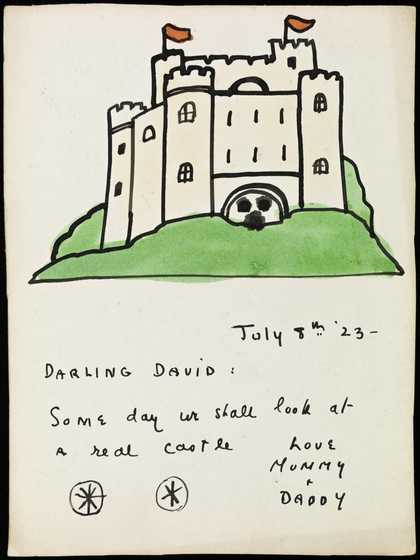 July 8th '23-
DARLING DAVID:
Some day we shall look at
a real castle
LOVE
MUMMY
+
DADDY